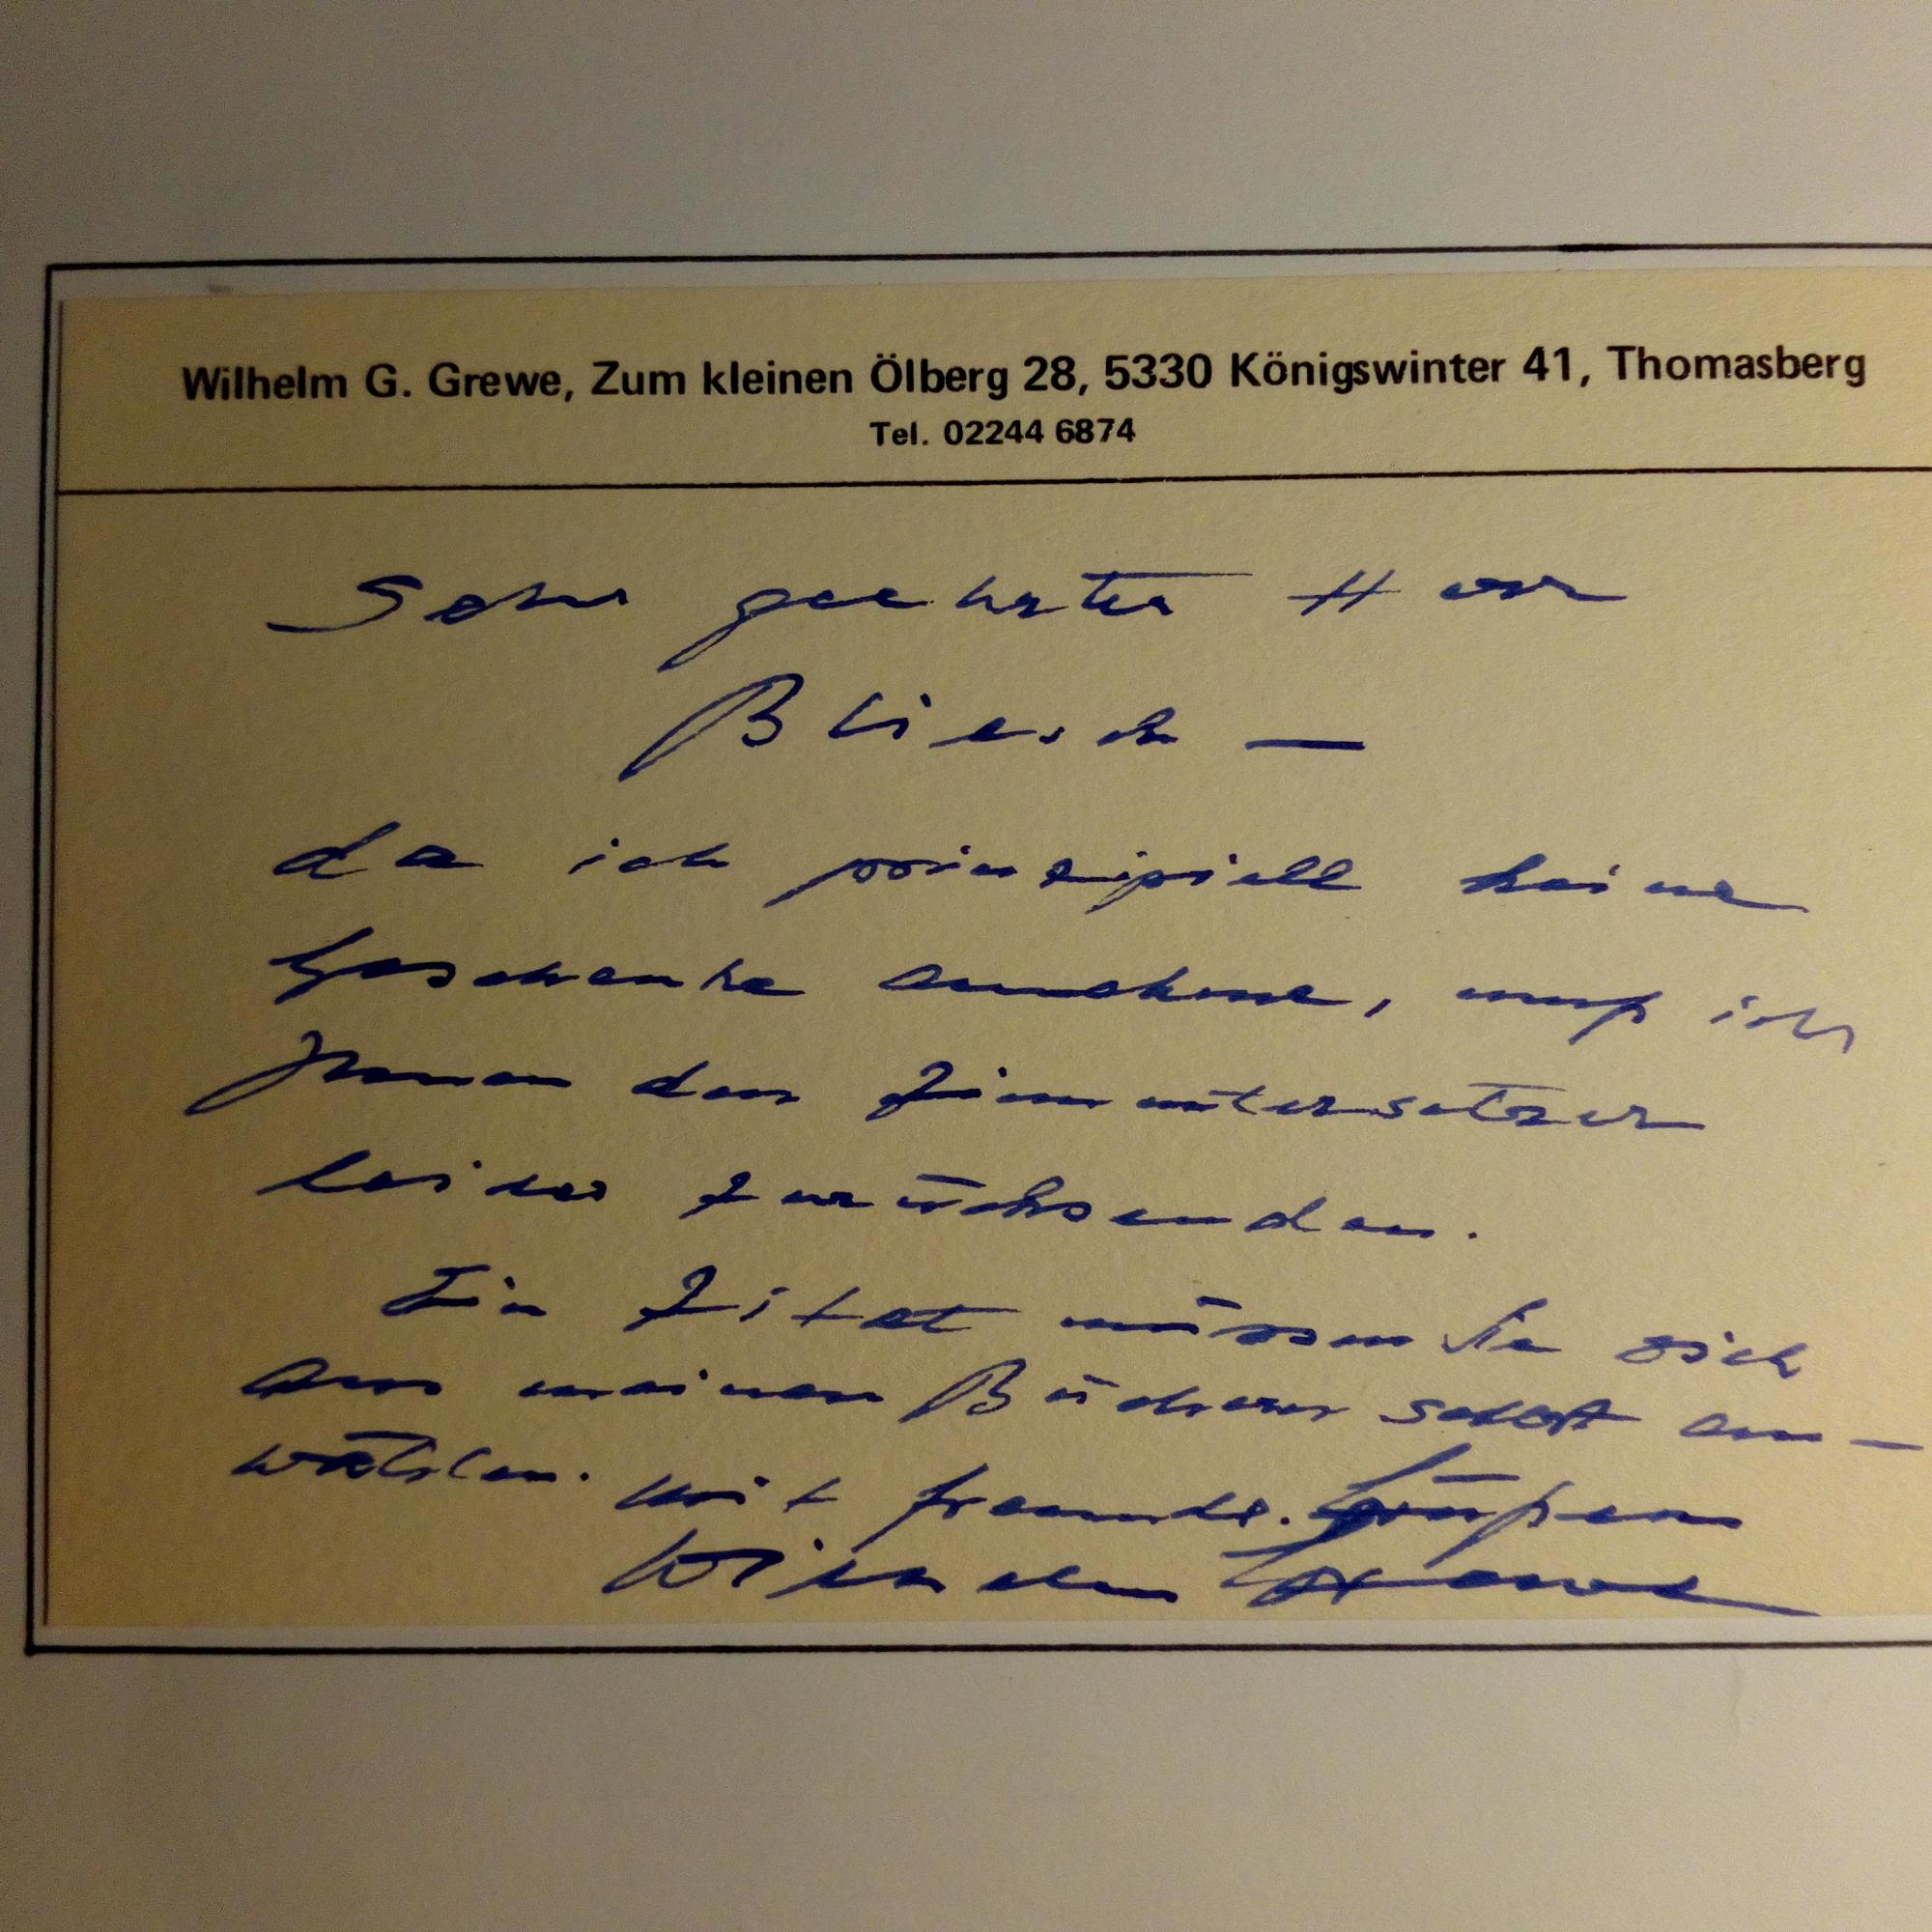 Wilhelm G. Grewe, Zum kleinen Ölberg 28, 5330 Königswinter 41, Thomasberg
Tel. 02244 6874
Sehr geehrter Herr
Bliesch —
da ich prinzipiell keine
Geschenke annehme, muß ich
Ihnen den Zinnuntersetzer
leider zurücksenden.
Ein Zitat müssen Sie sich
aus meinen Büchern selbst aus-
wählen. Mit freundl. Grüßen
Wilhelm Grewe